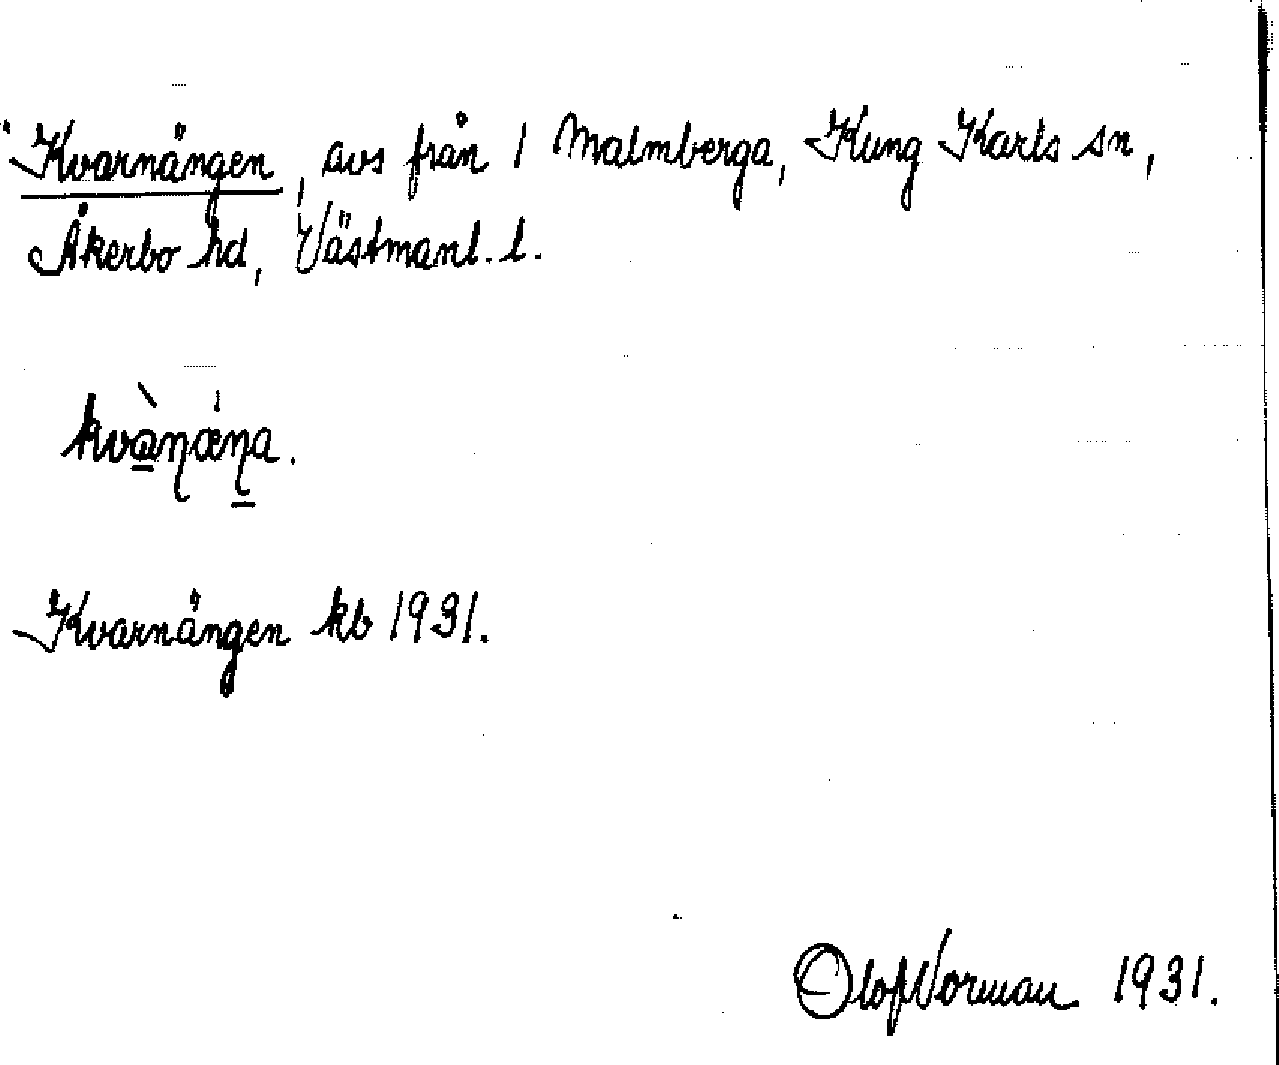 Kvarnängen, avs från 1 Malmberga, Kung Karls sn,
Åkerbo hd, Västmanl. l.
kvàṇǽṇa.
Kvarnängen kb 1931.
Olof Norman 1931.